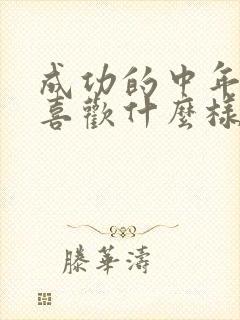 成功的中年
喜歡什麼樣
滕華濤